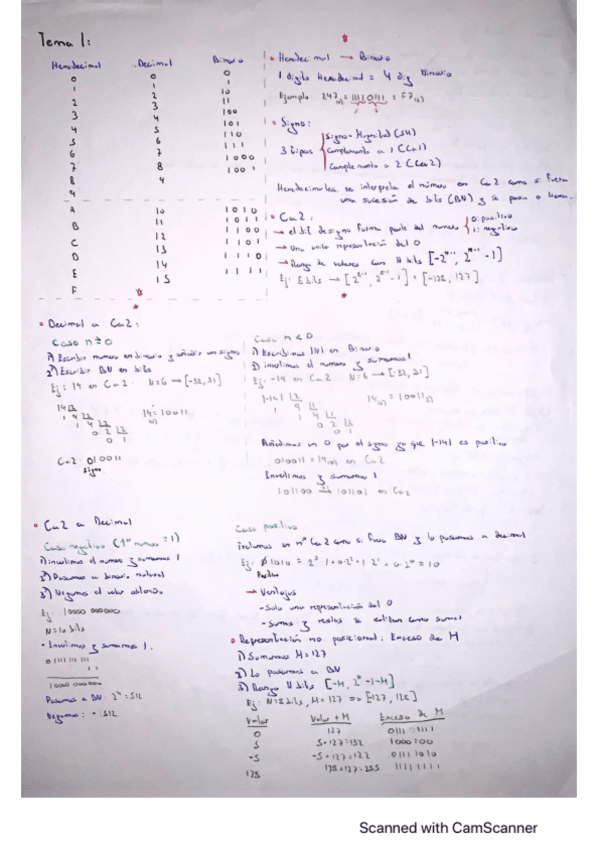 Tema 1:
Hexadecimal Decimal Binario
0 0 0
1 1 1
2 2 10
3 3 11
4 4 100
5 5 101
6 6 110
7 7 111
8 8 1000
9 1001
A 10 1010
B 11 1011
C 12 1100
D 13 1101
E 14 1110
F 15 1111
Hexadecimal → Binario
1 digito Hexadecimal = 4 dig Binario
Ejemplo: 247 = 11110111 = F7
F 7
Signo:
3 tipos
Signo-Magnitud (SM)
Complemento a 1 (Ca1)
Complemento a 2 (Ca2)
Hexadecimales se interpreta el número en Ca2 como si fuera
una sucesión de bits (BN) y se pasa a Hexa.
Ca2:
→ el bit de signo forma parte del numero
0: positivo
1: negativo
→ Una unica representación del 0
→ Rango de valores con N bits [-2ⁿ⁻¹, 2ⁿ⁻¹ -1]
Ej: 8 bits → [2ⁿ⁻¹, 2ⁿ⁻¹ -1] = [-128, 127]
Decimal a Ca2:
Caso n≥0
1) Escribir numero en binario y añadir un signo
2) Escribir BN en bits
Ej: 19 en Ca2 N=6 → [-32, 31]
19 = 10011
Ca2: 010011
Signo
Caso n<0
1) Escribimos |N| en Binario
2) invertimos el numero y sumamos 1
Ej: -19 en Ca2 N=6 → [-32, 31]
|-19|
19 = 10011
Añadimos un 0 por el signo ya que |-19| es positivo
010011 = 19 en Ca2
Invertimos y sumamos 1
101100 → 101101 en Ca2
Ca2 a Decimal
Caso negativo (1er numero = 1)
1) invertimos el numero y sumamos 1
2) Pasamos a binario natural
3) Negamos el valor obtenido
Ej: 1000000000
N=10 bits
- Invertimos y sumamos 1.
0111111111
1
1000000000
Pasamos a BN: 2⁹ = 512
Negamos: -512
Caso positivo
Tratamos en nº Ca2 como si fuera BN y lo pasamos a decimal
Ej: 01010 = 2³·1+0·2²+1·2¹+0·2⁰ = 10
Positivo
→ Ventajas
- Solo una representación del 0
- Sumas y restas se realizan como sumas
Representación no posicional. Exceso de M
1) Sumamos M=127
2) Lo pasamos a BN
3) Rango N bits [-M, 2ⁿ-1-M]
Ej: N=8 bits, M=127 => [-127, 128]
Valor Valor + M Exceso de M
0 127 01111111
5 5+127=132 1000100
-5 -5+127=122 01111010
128 128+127=255 11111111
Scanned with CamScanner